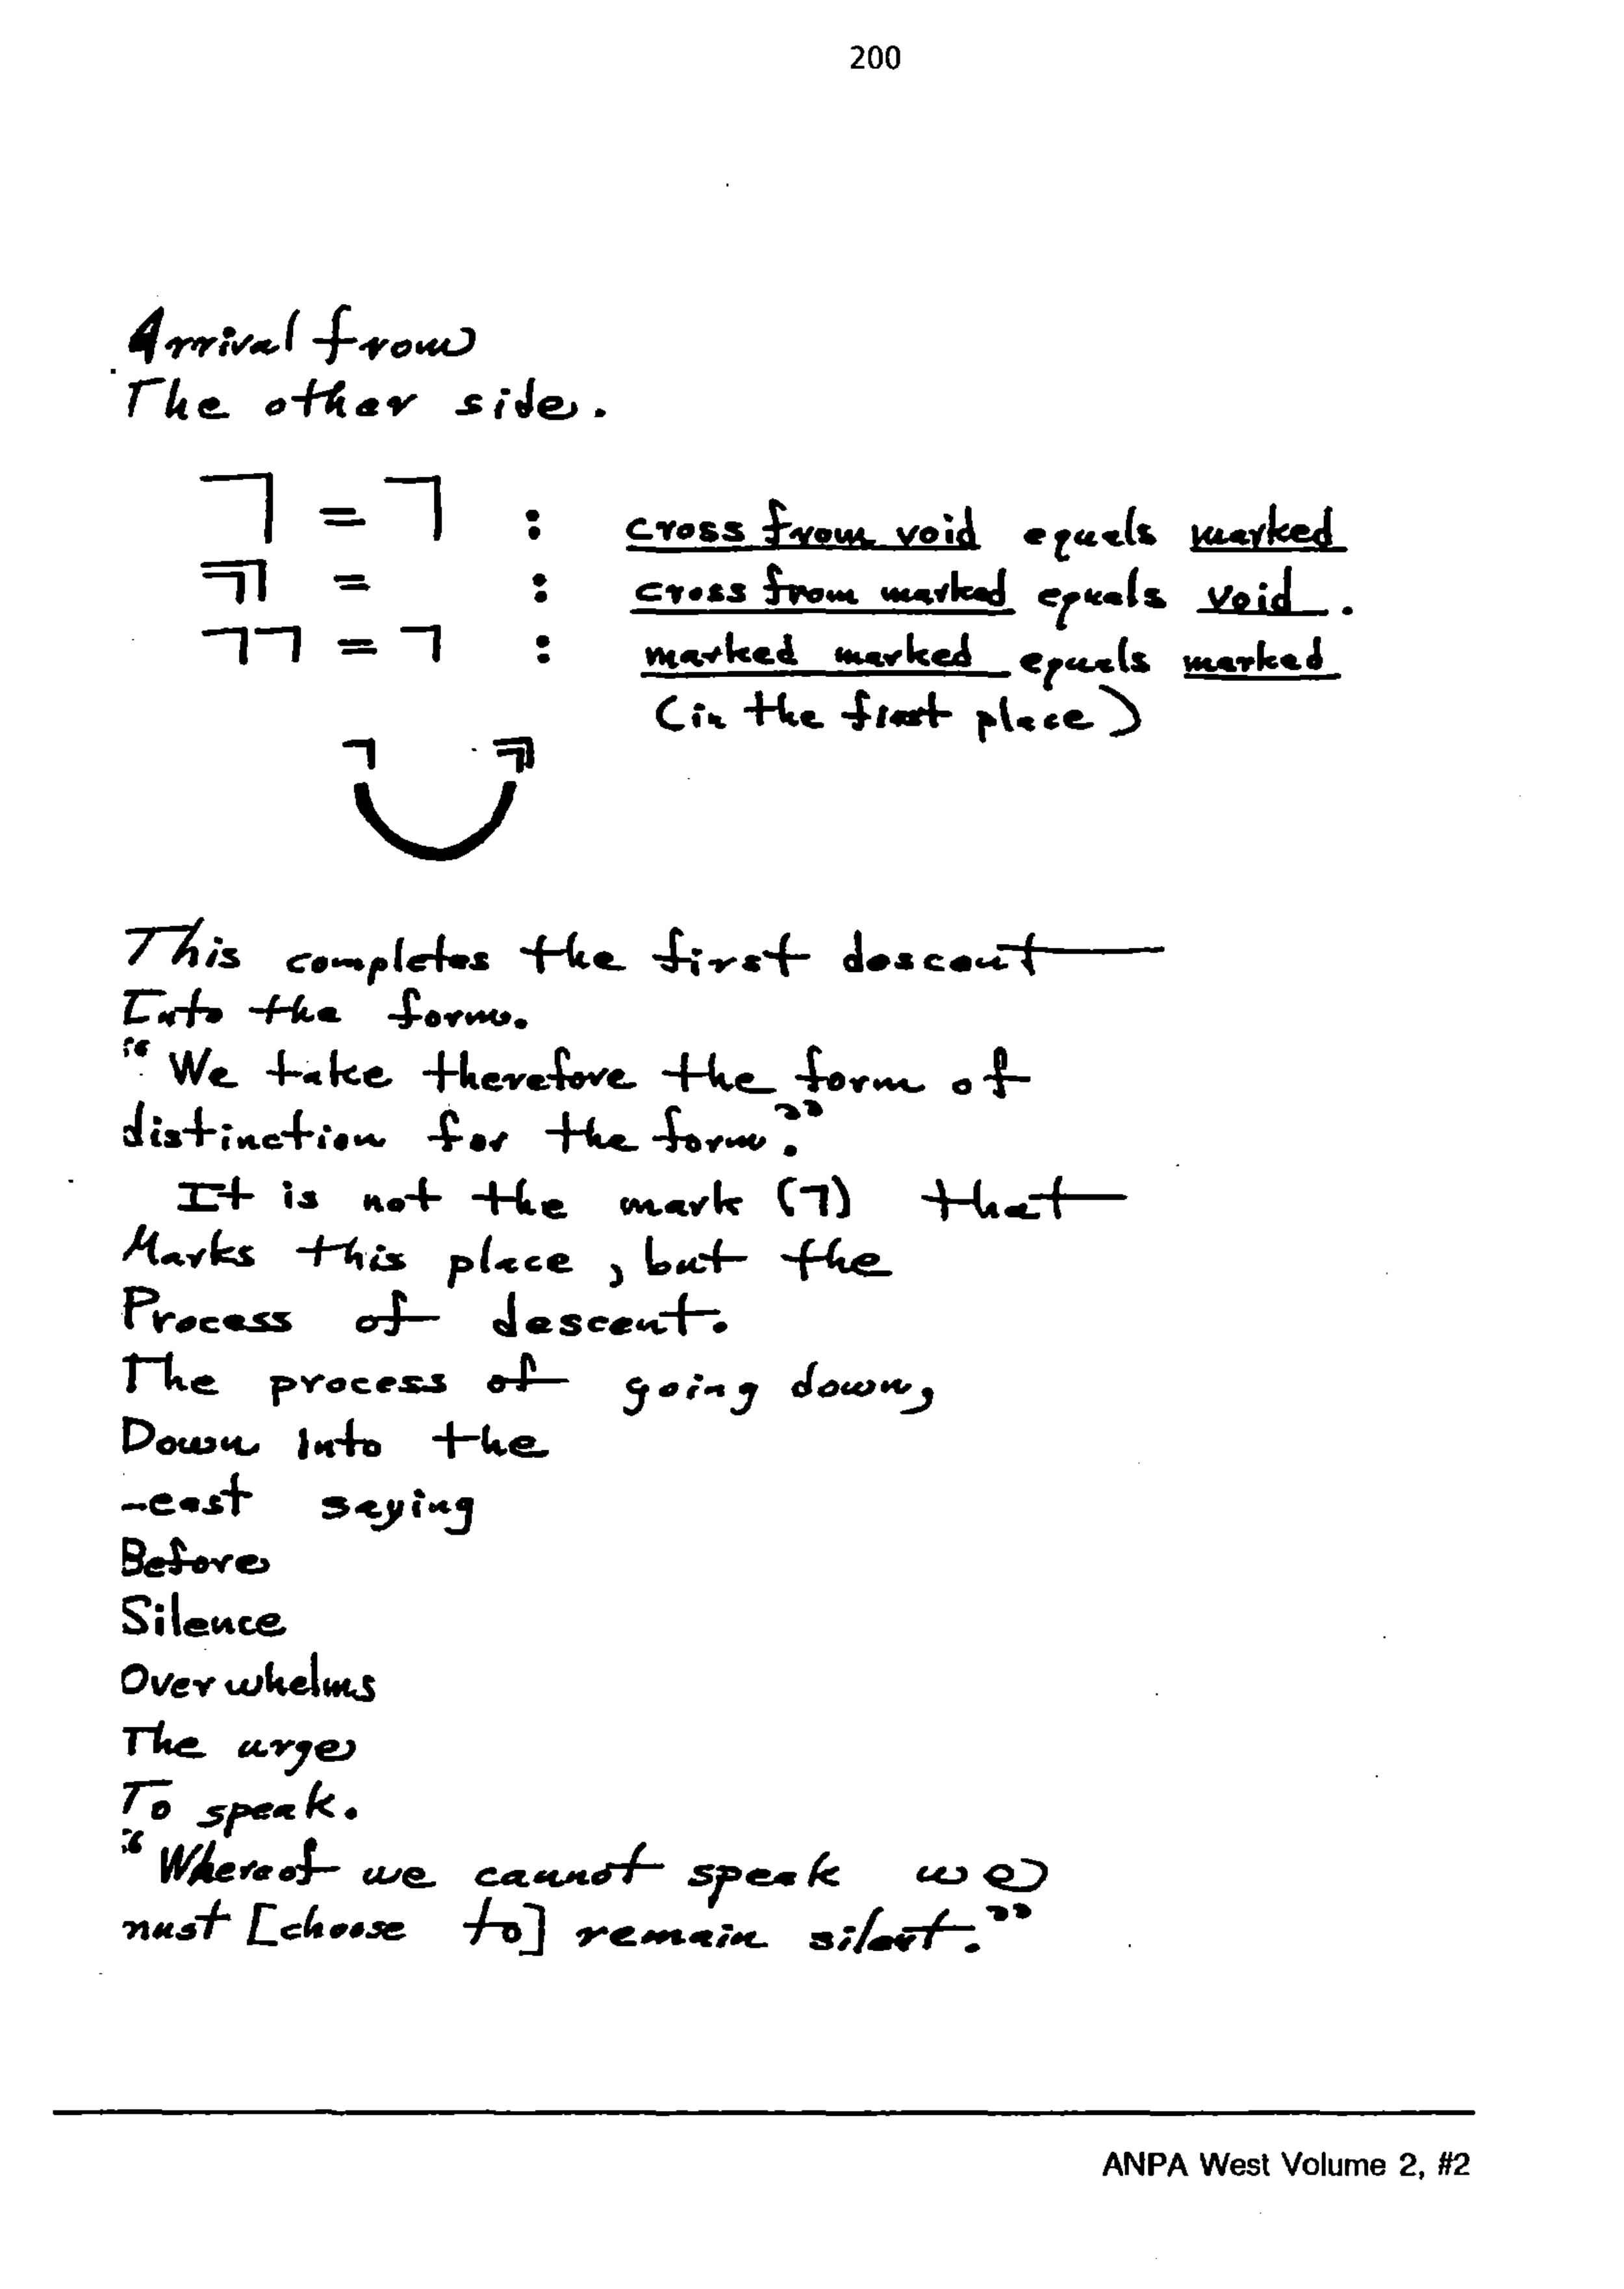 200
Arrival from
The other side.
⏋ = ⏋ : cross from void equals marked
⏋⏋ = : cross from marked equals void.
⏋⏋ = ⏋ : marked marked equals marked
(in the first place)
⏋ ⏋⏋
This completes the first descent
Into the form.
"We take therefore the form of
distinction for the form."
It is not the mark (⏋) that
Marks this place, but the
Process of descent.
The process of going down,
Down into the
-east saying
Before
Silence
Overwhelms
The urge
To speak.
"Whereof we cannot speak we
must [choose to] remain silent."
ANPA West Volume 2, #2